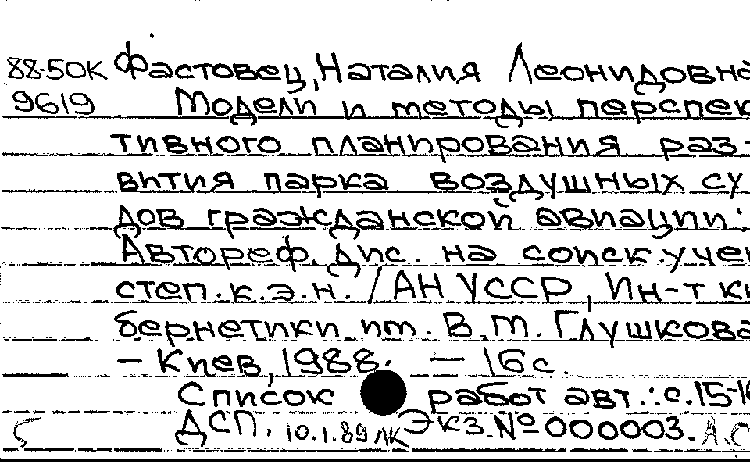 88-50К Фастовец, Наталия Леонидовна
9619 Модели и методы перспек
тивного планирования раз-
вития парка воздушных су
дов гражданской авиации:
Автореф. дис. на соиск. учен
степ. к.э.н. / АН УССР, Ин-т ки
бернетики им. В.М. Глушкова
- Киев, 1988. - 16 с.
Список работ авт.: с. 15-16
ДСП. 10.1.89 ЛК Экз. № 000003. А.С